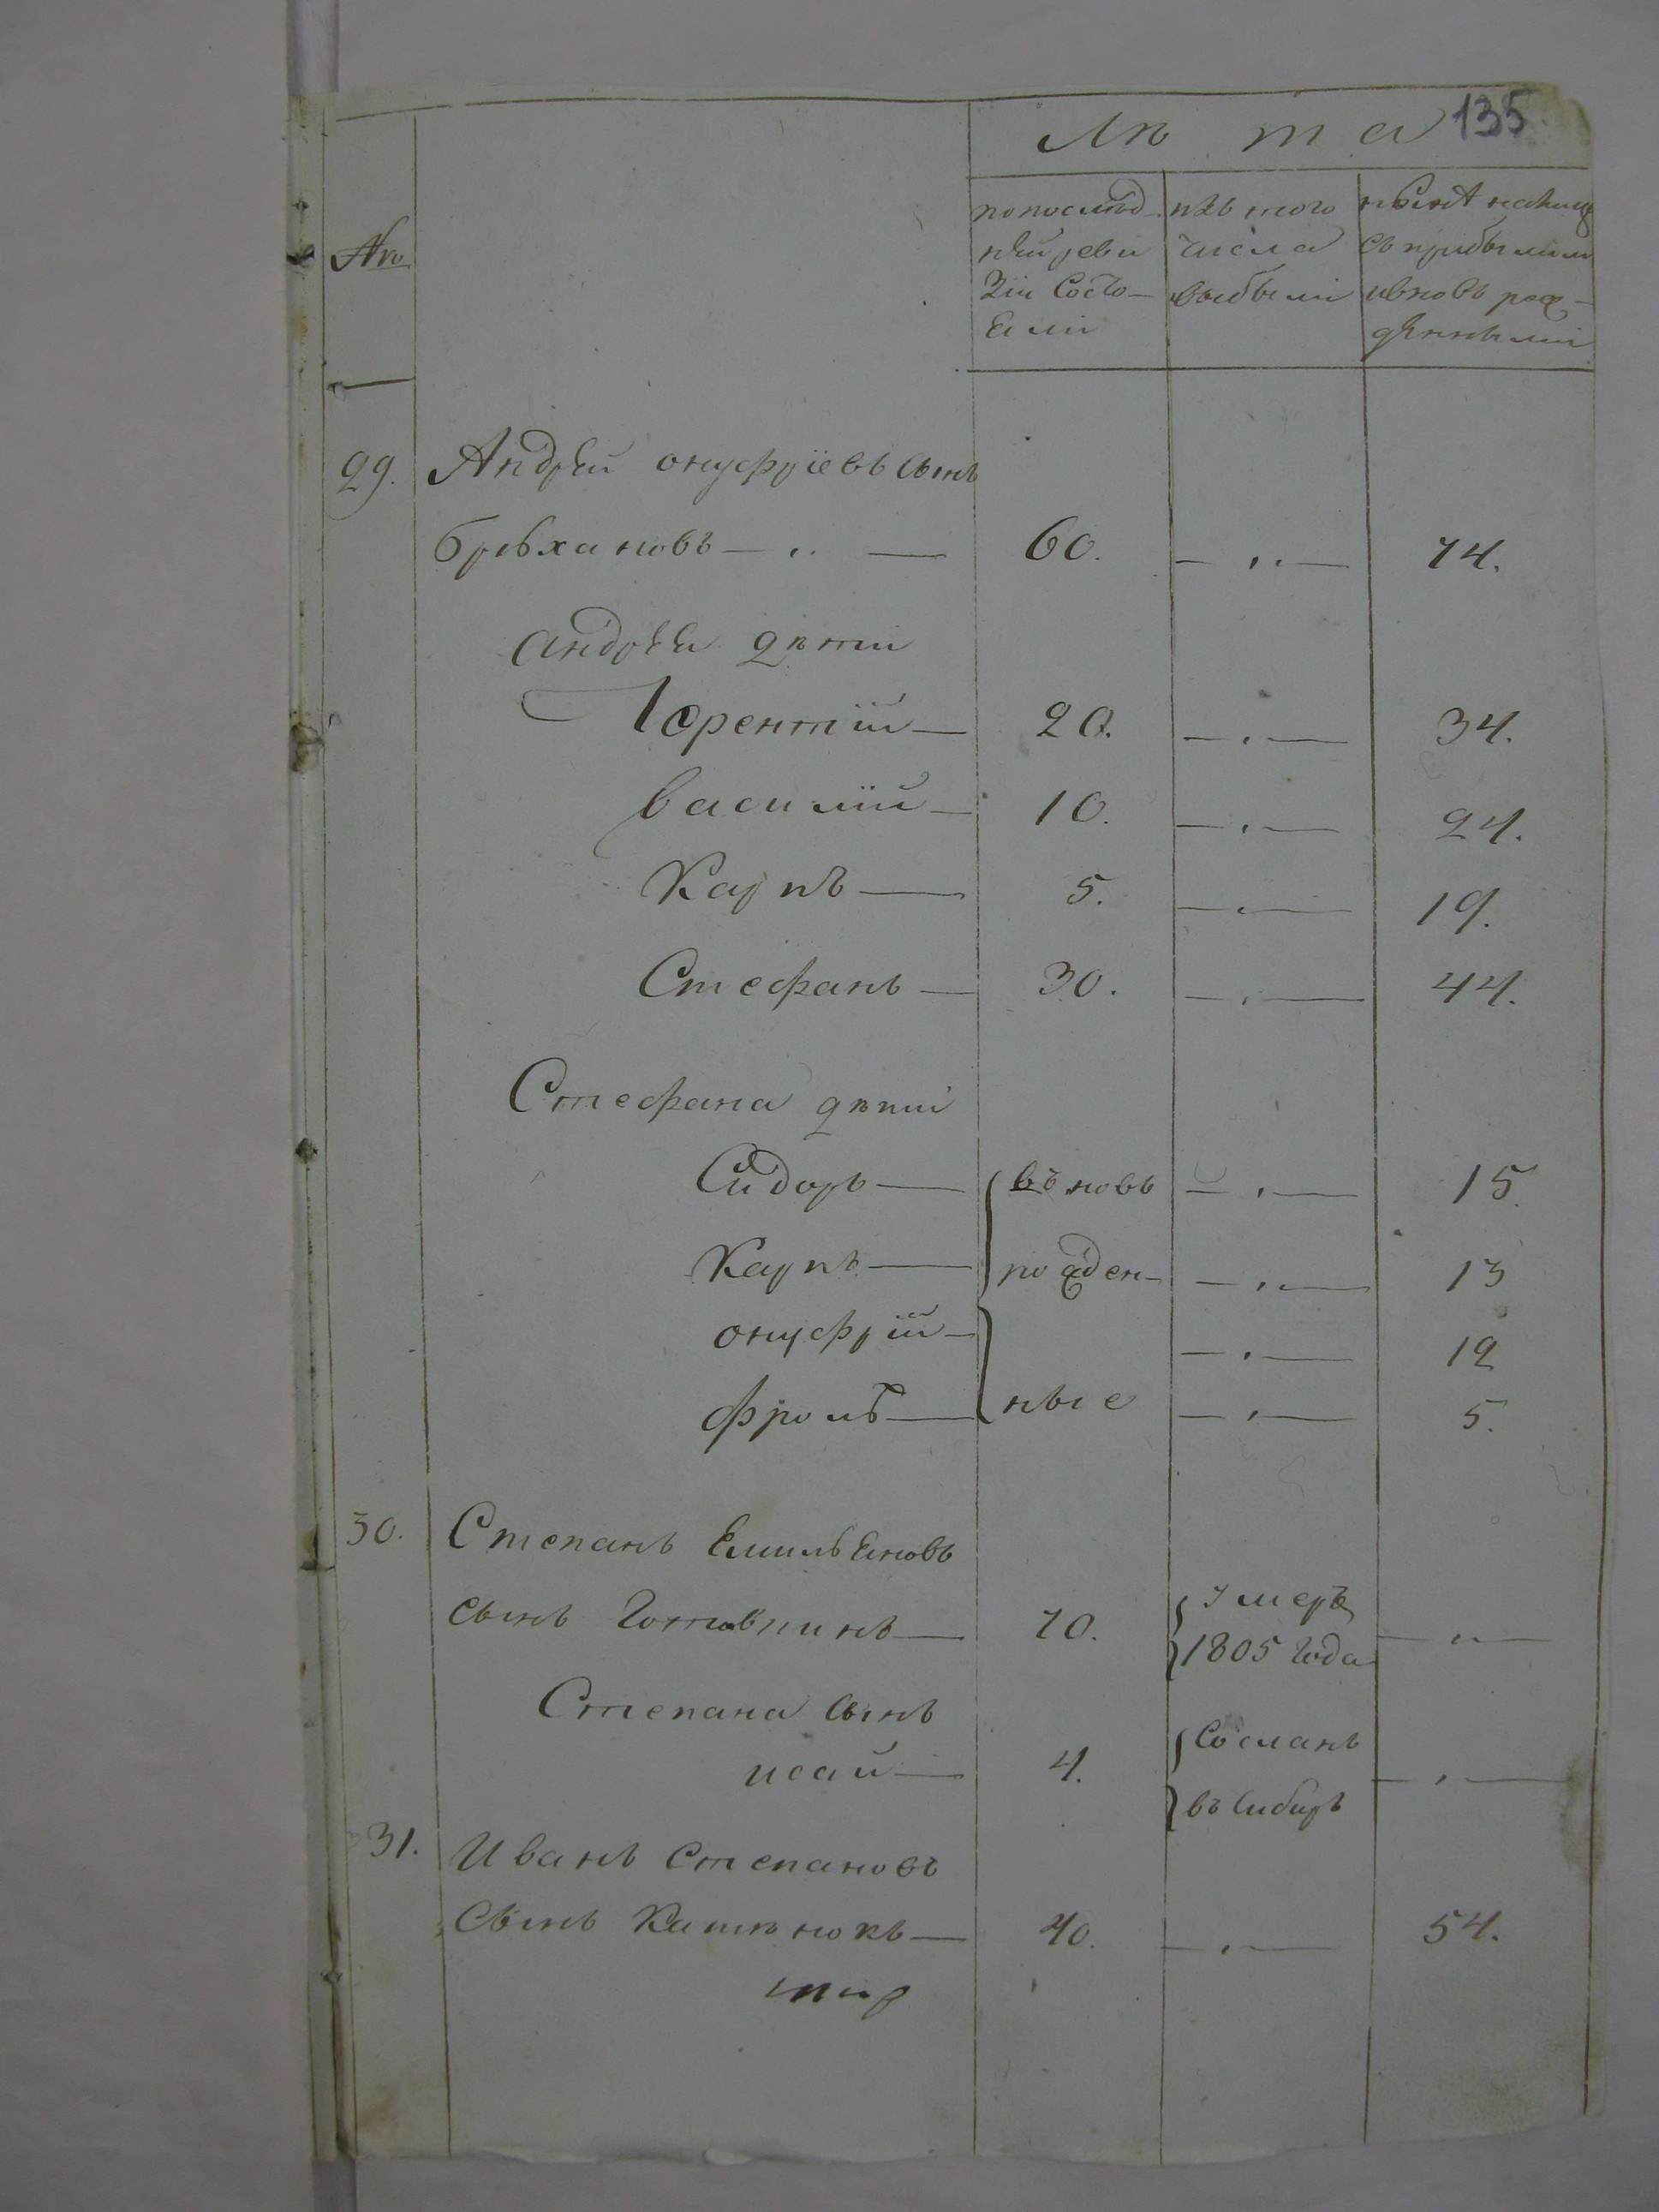 135
Лѣ та
№
по послѣд-
ней реви
зіи состо-
яли
изъ того
числа
выбыли
нынѣ налицо
съ прибылыми
и вновь рож-
денными
29. Андрей онуфріевъ сынъ
брѣхановъ — 60. — 74.
андрея дѣти
Терентій — 20. — 34.
василій — 10. — 24.
Карпъ — 5. — 19.
Стефанъ — 30. — 44.
Стефана дѣти
Сидоръ — въновь — 15.
Карпъ — рожден- — 13
онуфрій — — 12
фролъ — ные — 5.
30. Степанъ Емильяновъ
сынъ — 70. умеръ
1805 года —
Степана сынъ
исай — 4. Сосланъ —
въ Сибирь
31. Иванъ Степановъ
сынъ — 40. — 54.